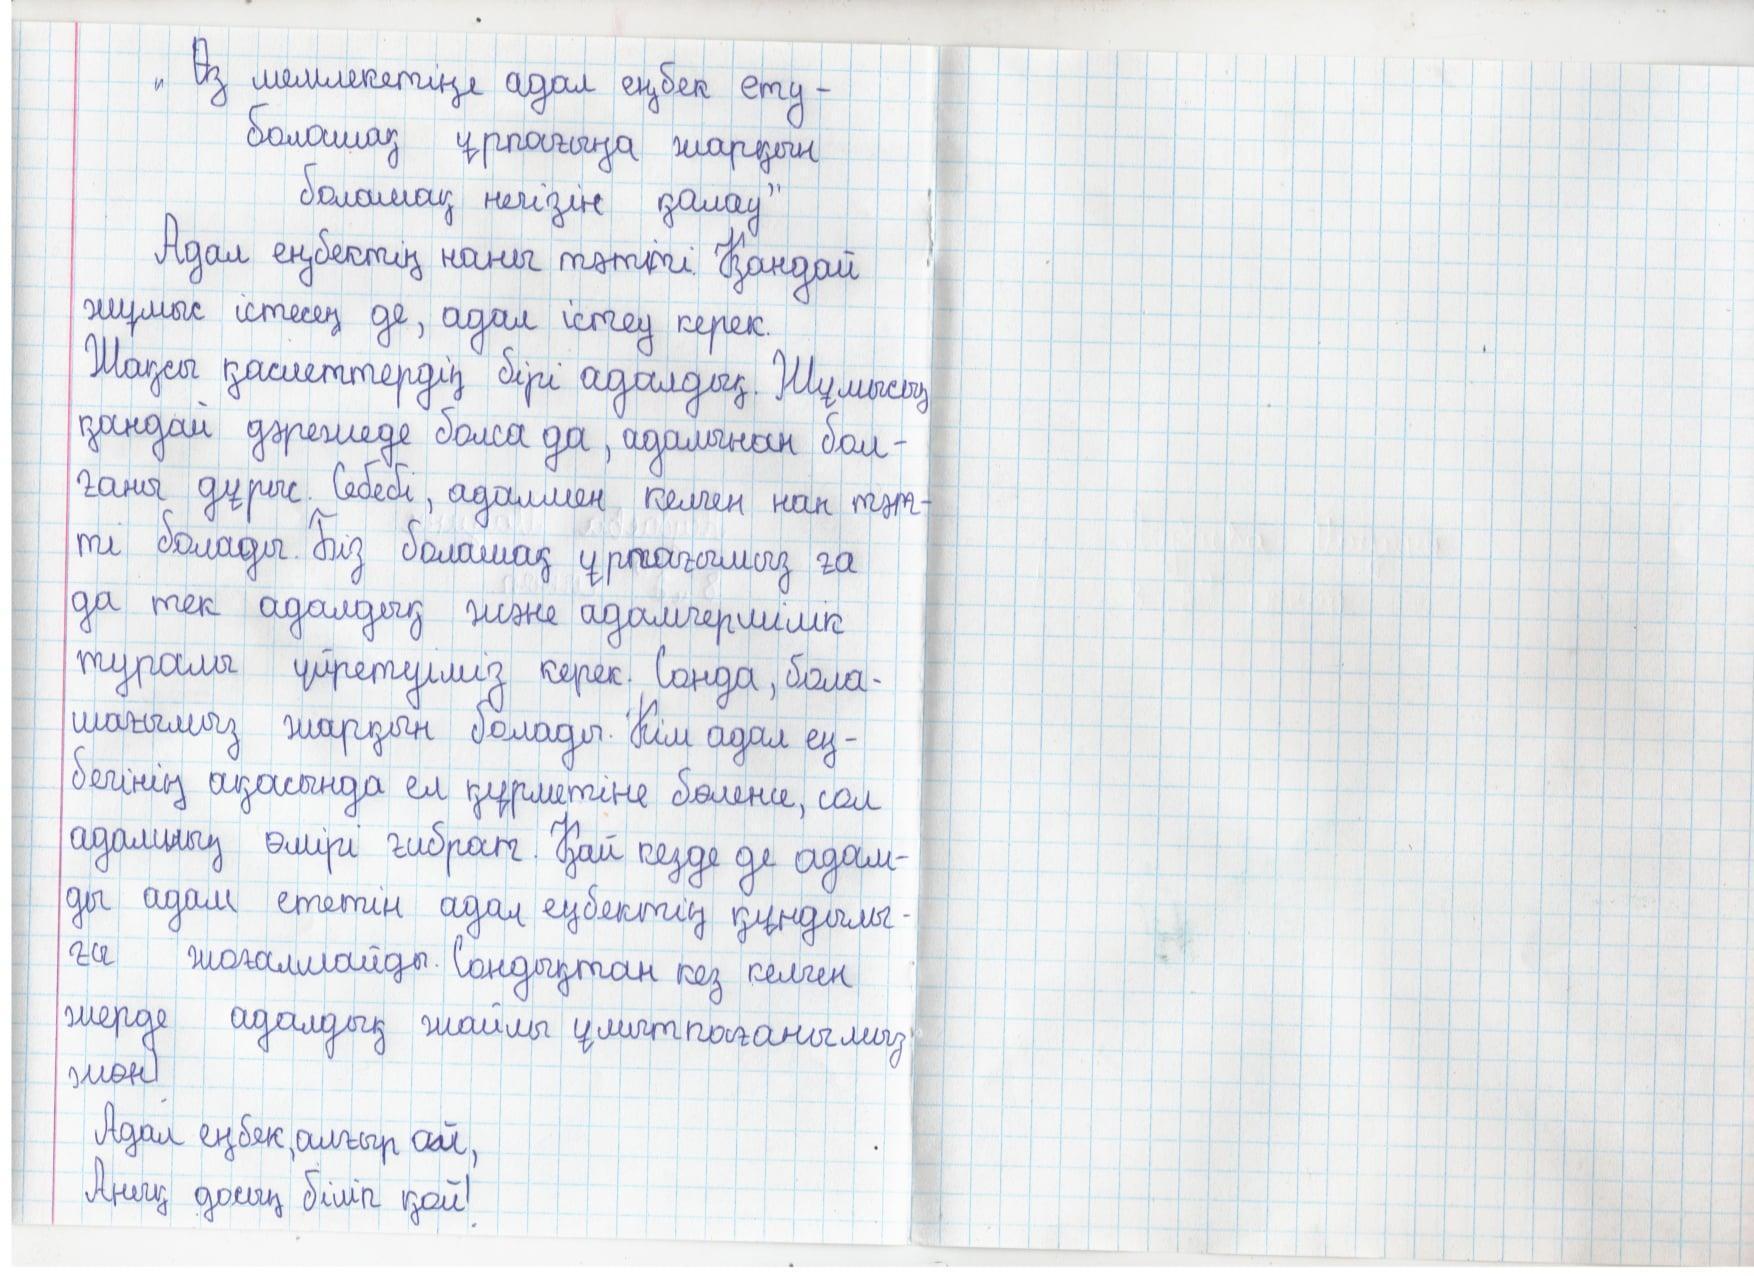 „Өз мемлекетіңе адал еңбек ету -
болашақ ұрпағыңа жарқын
болашақ негізін қалау"
Адал еңбектің наны тәтті. Қандай
жұмыс істесең де, адал істеу керек.
Жақсы қасиеттердің бірі адалдық. Жұмысың
қандай дәрежеде болса да, адалынан бол-
ғаны дұрыс. Себебі, адалмен келген нан тәт-
ті болады. Біз болашақ ұрпағымыз ға
да тек адалдық және адамгершілік
туралы үйретуіміз керек. Сонда, бола-
шағымыз жарқын болады. Кім адал ең-
бегінің ақасында ел құрметіне бөленсе, сол
адамның өмірі ғибрат. Қай кезде де адам-
ды адам ететін адал еңбектің құндылы-
ғы жоғалмайды. Сондықтан кез келген
жерде адалдық жайлы ұмытпағанымыз
жөн!
Адал еңбек, алғыр ой,
Анық досың біліп қой!